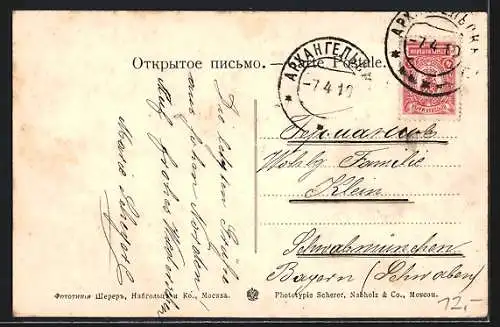 Открытое письмо. — Carte Postale.
АРХАНГЕЛЬСК
-7.4.10
АРХАНГЕЛЬСКЪ
-7.4.10
Die letzten Grüße
aus hohem Norden!
Auf frohes Wiedersehen
Marie
Германия
Wohlg Familie
Klein
Schwabmünchen
Bayern (Schwaben)
12,-
Фототипія Шереръ, Набгольцъ и Ко., Москва.
Phototypie Scherer, Nabholz & Co., Moscou.